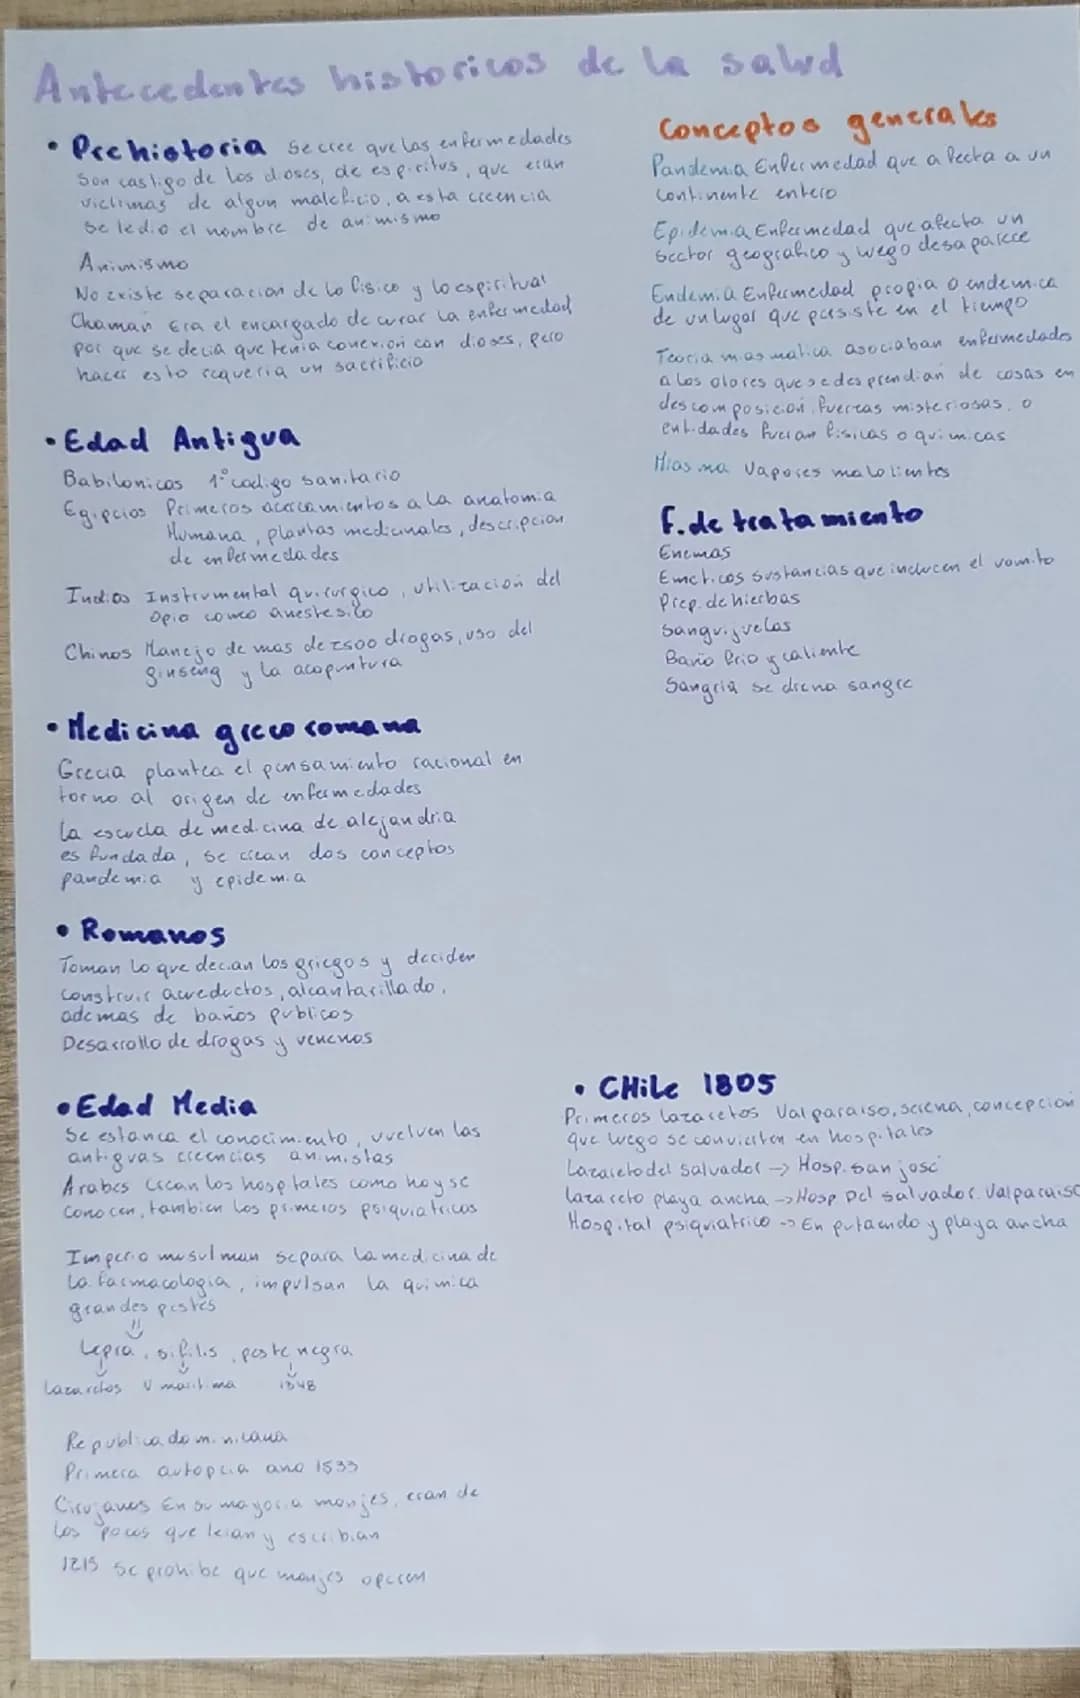 Antecedentes historicos de la salud
• Prehistoria Se cree que las enfermedades
son castigo de los dioses, de espiritus, que eran
victimas de algun maleficio, a esta creencia
se le dio el nombre de animismo
Animismo
No existe separacion de lo fisico y lo espiritual
Chaman Era el encargado de curar la enfermedad
por que se decia que tenia conexion con dioses, pero
hacer esto requeria un sacrificio
• Edad Antigua
Babilonicos 1° codigo sanitario
Egipcios Primeros acercamientos a la anatomia
Humana, plantas medicinales, descripcion
de enfermedades
Indios Instrumental quirurgico, utilizacion del
Opio como anestesico
Chinos Manejo de mas de 2500 drogas, uso del
ginseng y la acopuntura
• Medicina greco romana
Grecia plantea el pensamiento racional en
torno al origen de enfermedades
La escuela de medicina de alejandria
es fundada, se crean dos conceptos
pandemia y epidemia
• Romanos
Toman lo que decian los griegos y deciden
construir acueductos, alcantarillado,
ademas de baños publicos
Desarrollo de drogas y venenos
• Edad Media
Se estanca el conocimiento, vuelven las
antiguas creencias animistas
Arabes crean los hospitales como hoy se
conocen, tambien los primeros psiquiatricos
Imperio musulman separa la medicina de
la farmacologia, impulsan la quimica
grandes pestes
Lepra, sifilis, peste negra
Lazaretos V maritima 1348
Republica dominicana
Primera autopcia año 1533
Cirujanos En su mayoria monjes, eran de
los pocos que leian y escribian
1215 se prohibe que monjes operen
Conceptos generales
Pandemia Enfermedad que afecta a un
continente entero
Epidemia Enfermedad que afecta un
sector geografico y luego desaparece
Endemia Enfermedad propia o endemica
de un lugar que persiste en el tiempo
Teoria miasmatica asociaban enfermedades
a los olores que se desprendian de cosas en
descomposicion, fuerzas misteriosas, o
entidades fueran fisicas o quimicas
Miasma Vapores malolientes
F. de tratamiento
Enemas
Emeticos sustancias que inducen el vomito
Prep. de hierbas
Sanguijuelas
Baño frio y caliente
Sangria se drena sangre
• CHile 1805
Primeros lazaretos Valparaiso, serena, concepcion
que luego se convierten en hospitales
Lazareto del salvador -> Hosp. san jose
lazareto playa ancha -> Hosp Del salvador. Valparaiso
Hospital psiquiatrico -> En putaendo y playa ancha